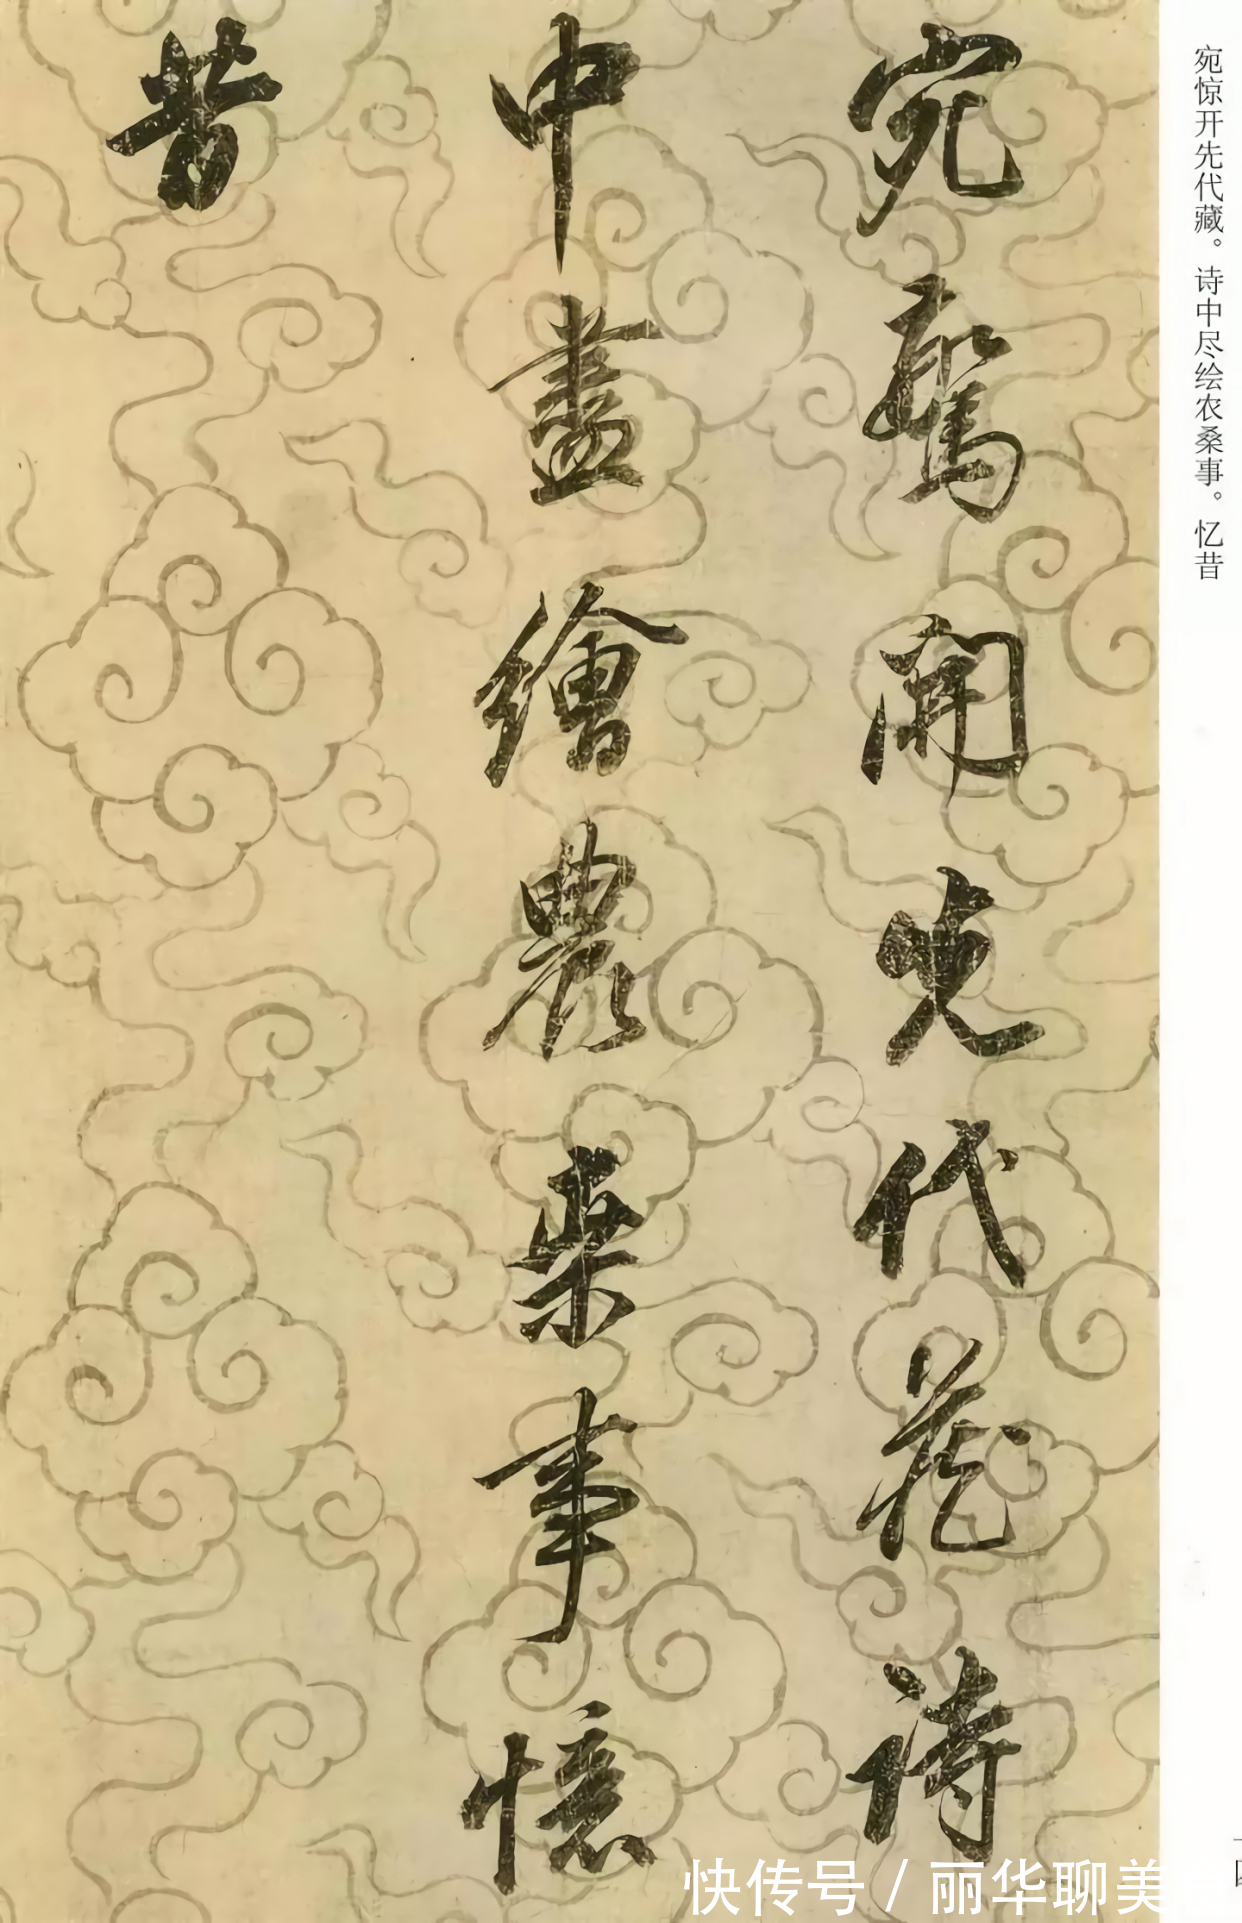 宛驚開先代藏詩
中盡繪農桒事憶
昔
宛惊开先代藏。诗中尽绘农桑事。忆昔
快传号/丽华聊美